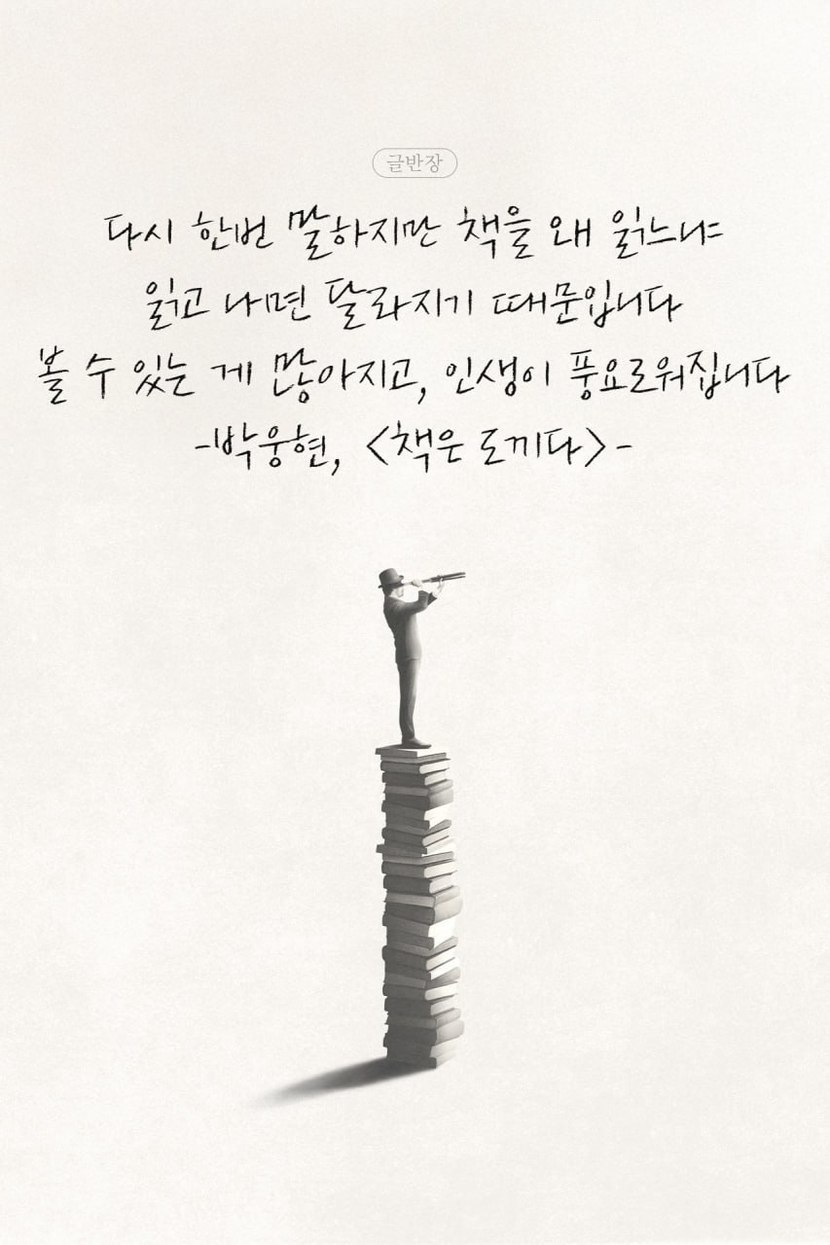 글반장
다시 한번 말하지만 책을 왜 읽느냐
읽고 나면 달라지기 때문입니다
볼 수 있는 게 많아지고, 인생이 풍요로워집니다
-박웅현, <책은 도끼다>-